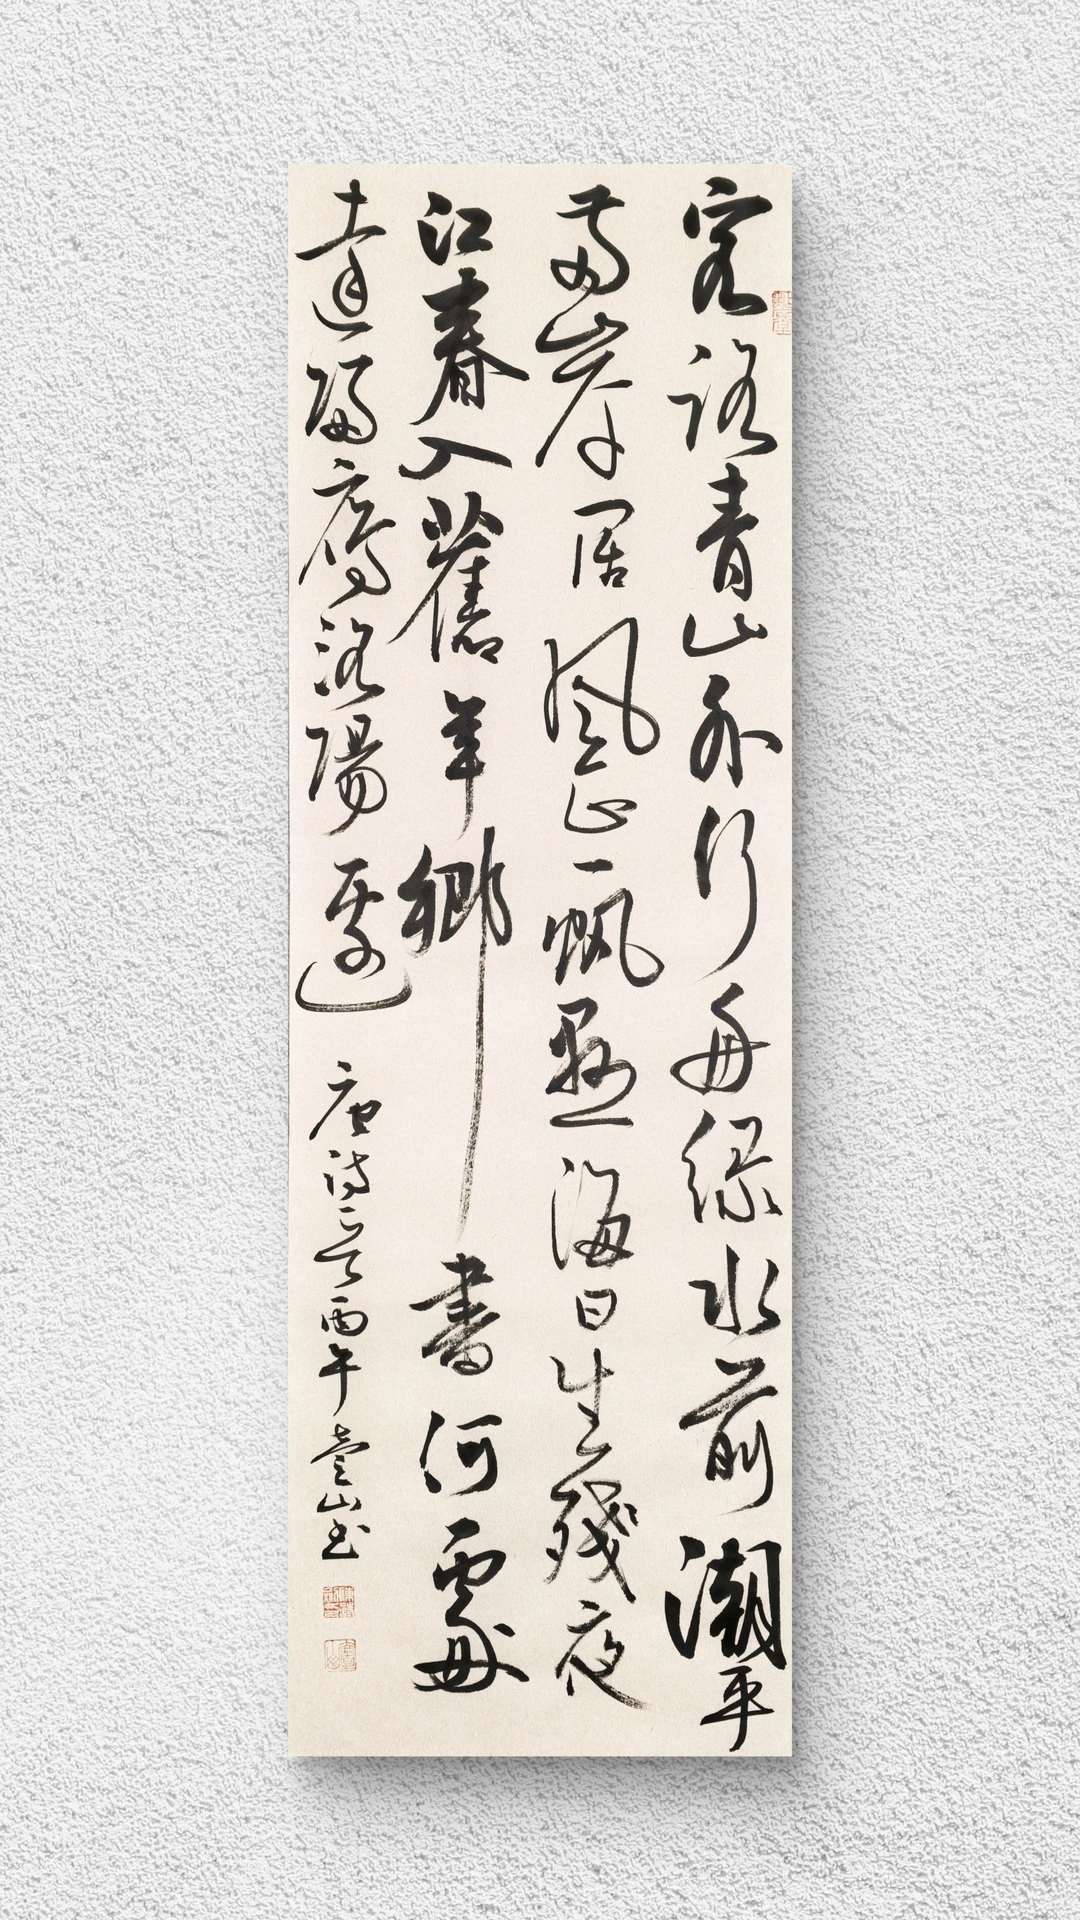 客路青山外行舟綠水前潮平
兩岸闊風正一帆懸海日生殘夜
江春入舊年鄉書何處
達歸鴈洛陽邊
唐詩一首丙午山书